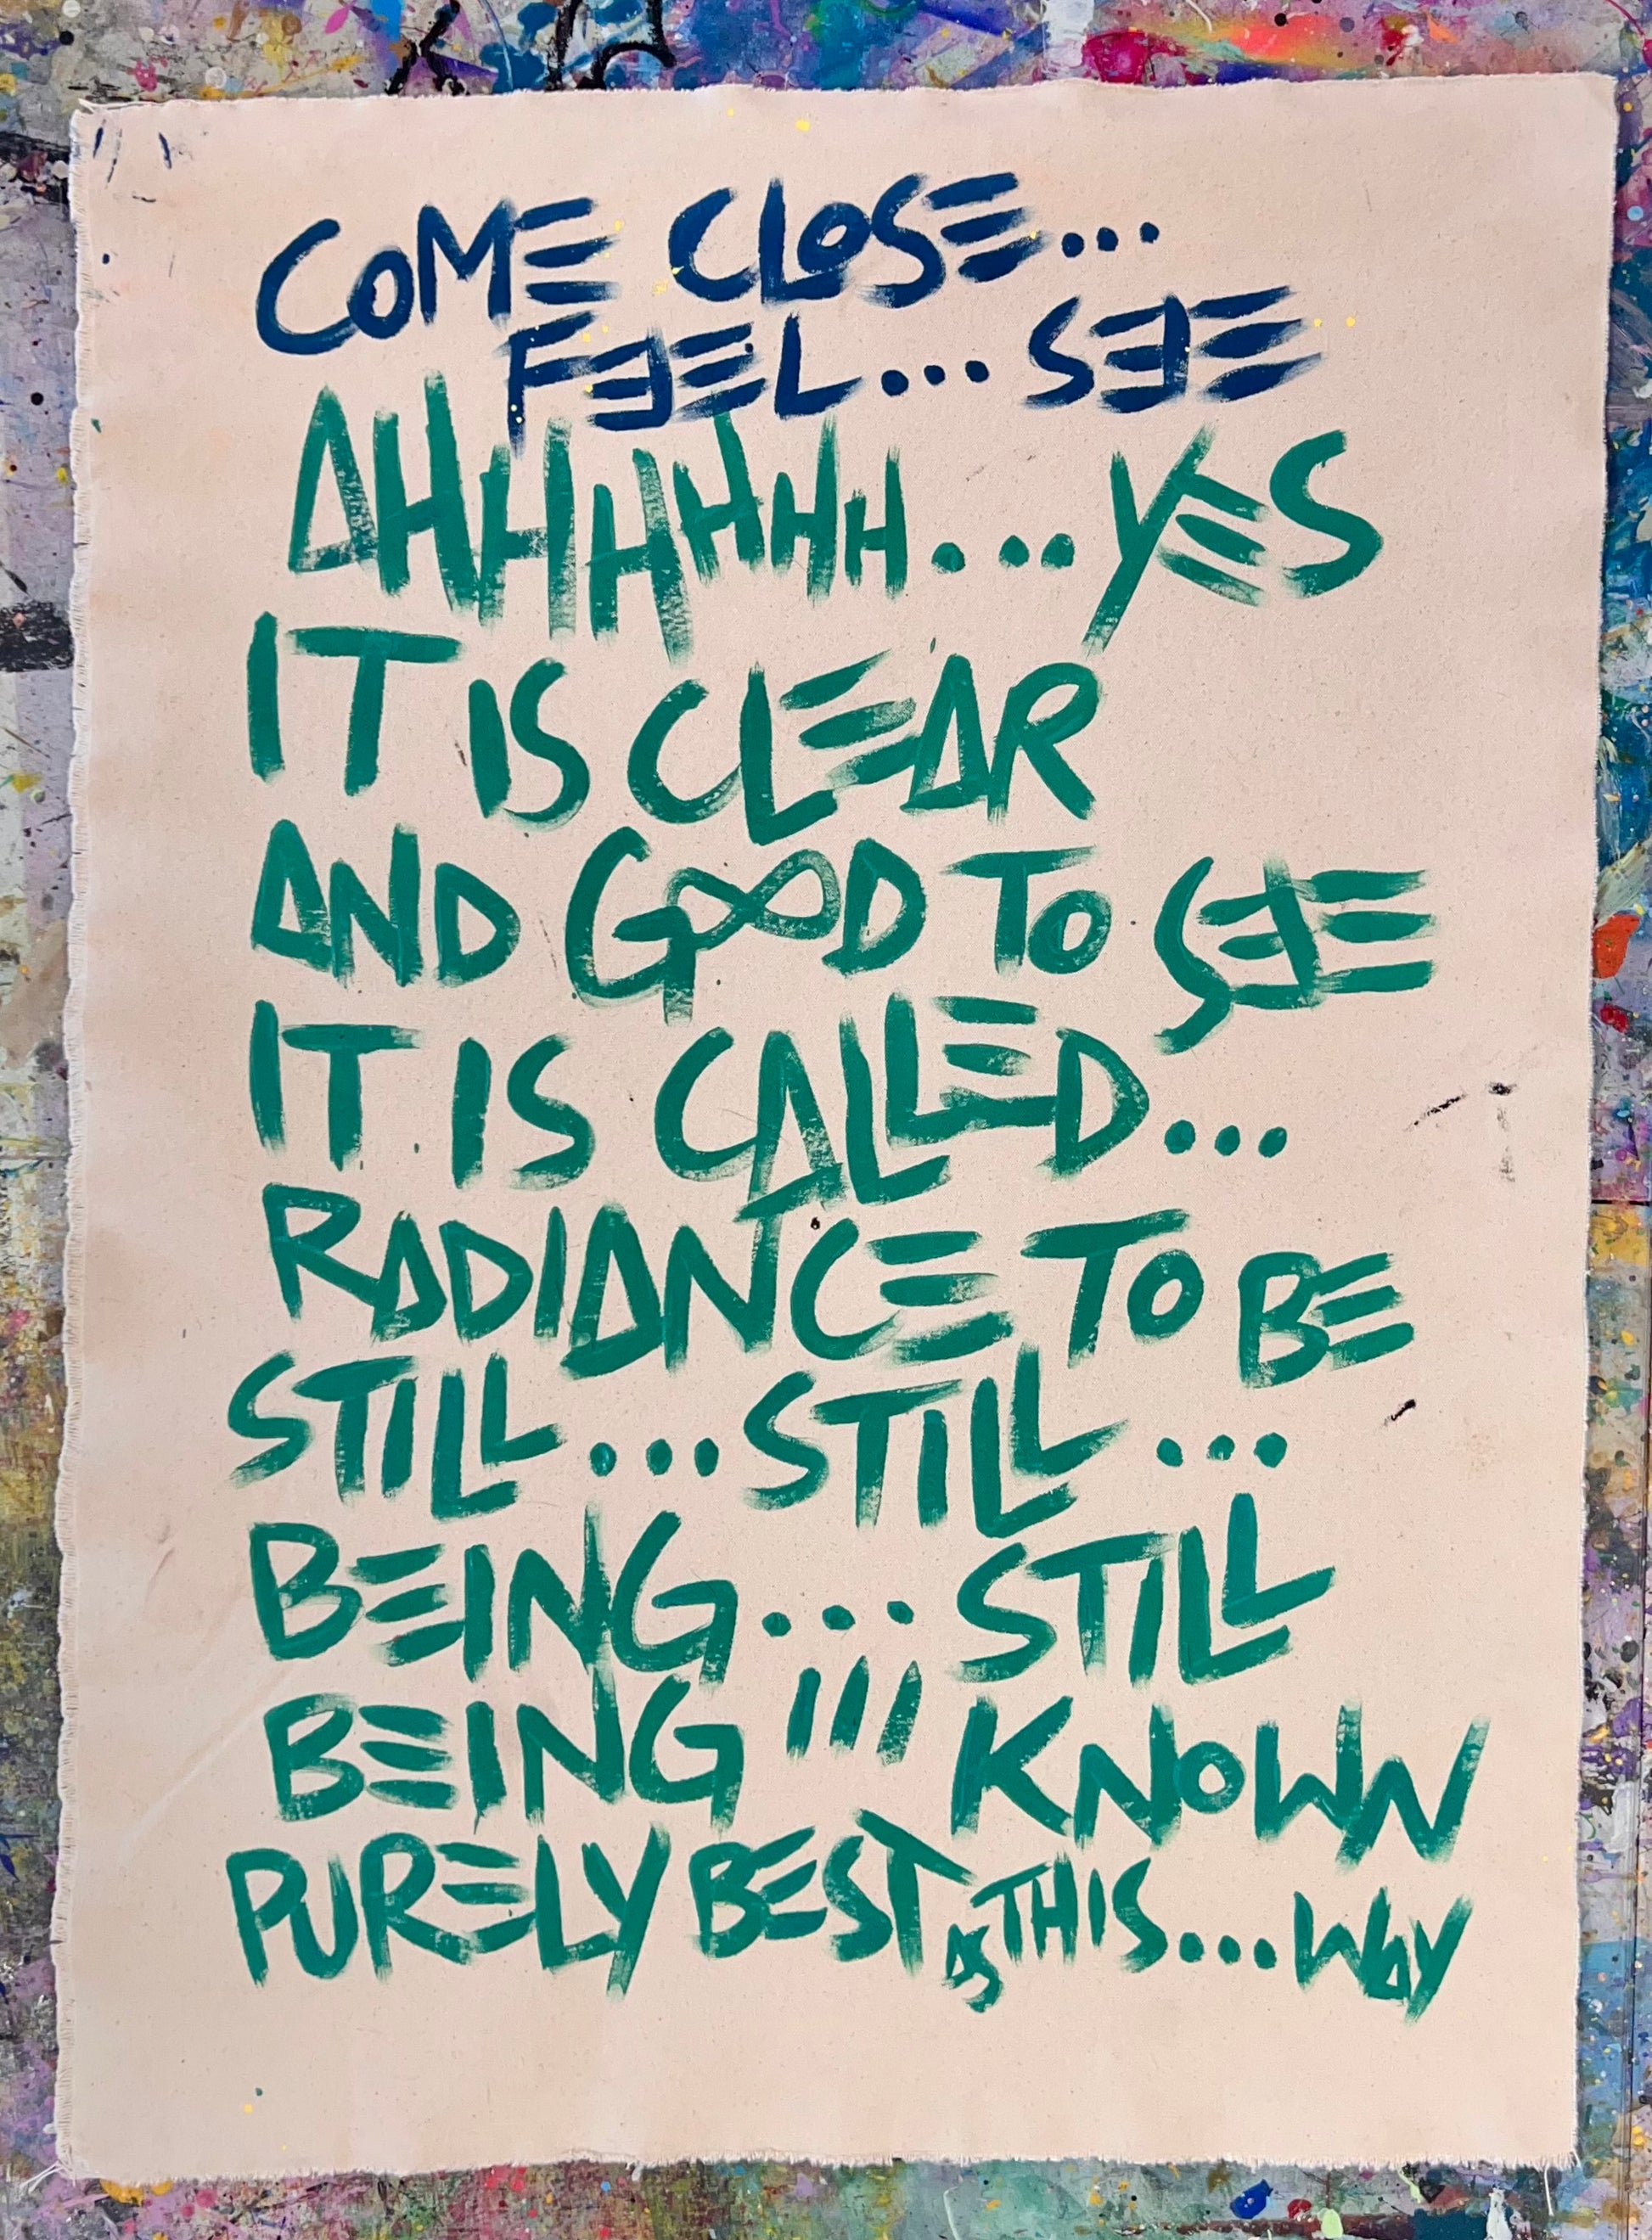 COME CLOSE...
FEEL... SEE
AHHHHHHH... YES
IT IS CLEAR
AND GOOD TO SEE
IT IS CALLED...
RADIANCE TO BE
STILL... STILL...
BEING... STILL
BEING ||| KNOWN
PURELY BEST AS THIS... WAY